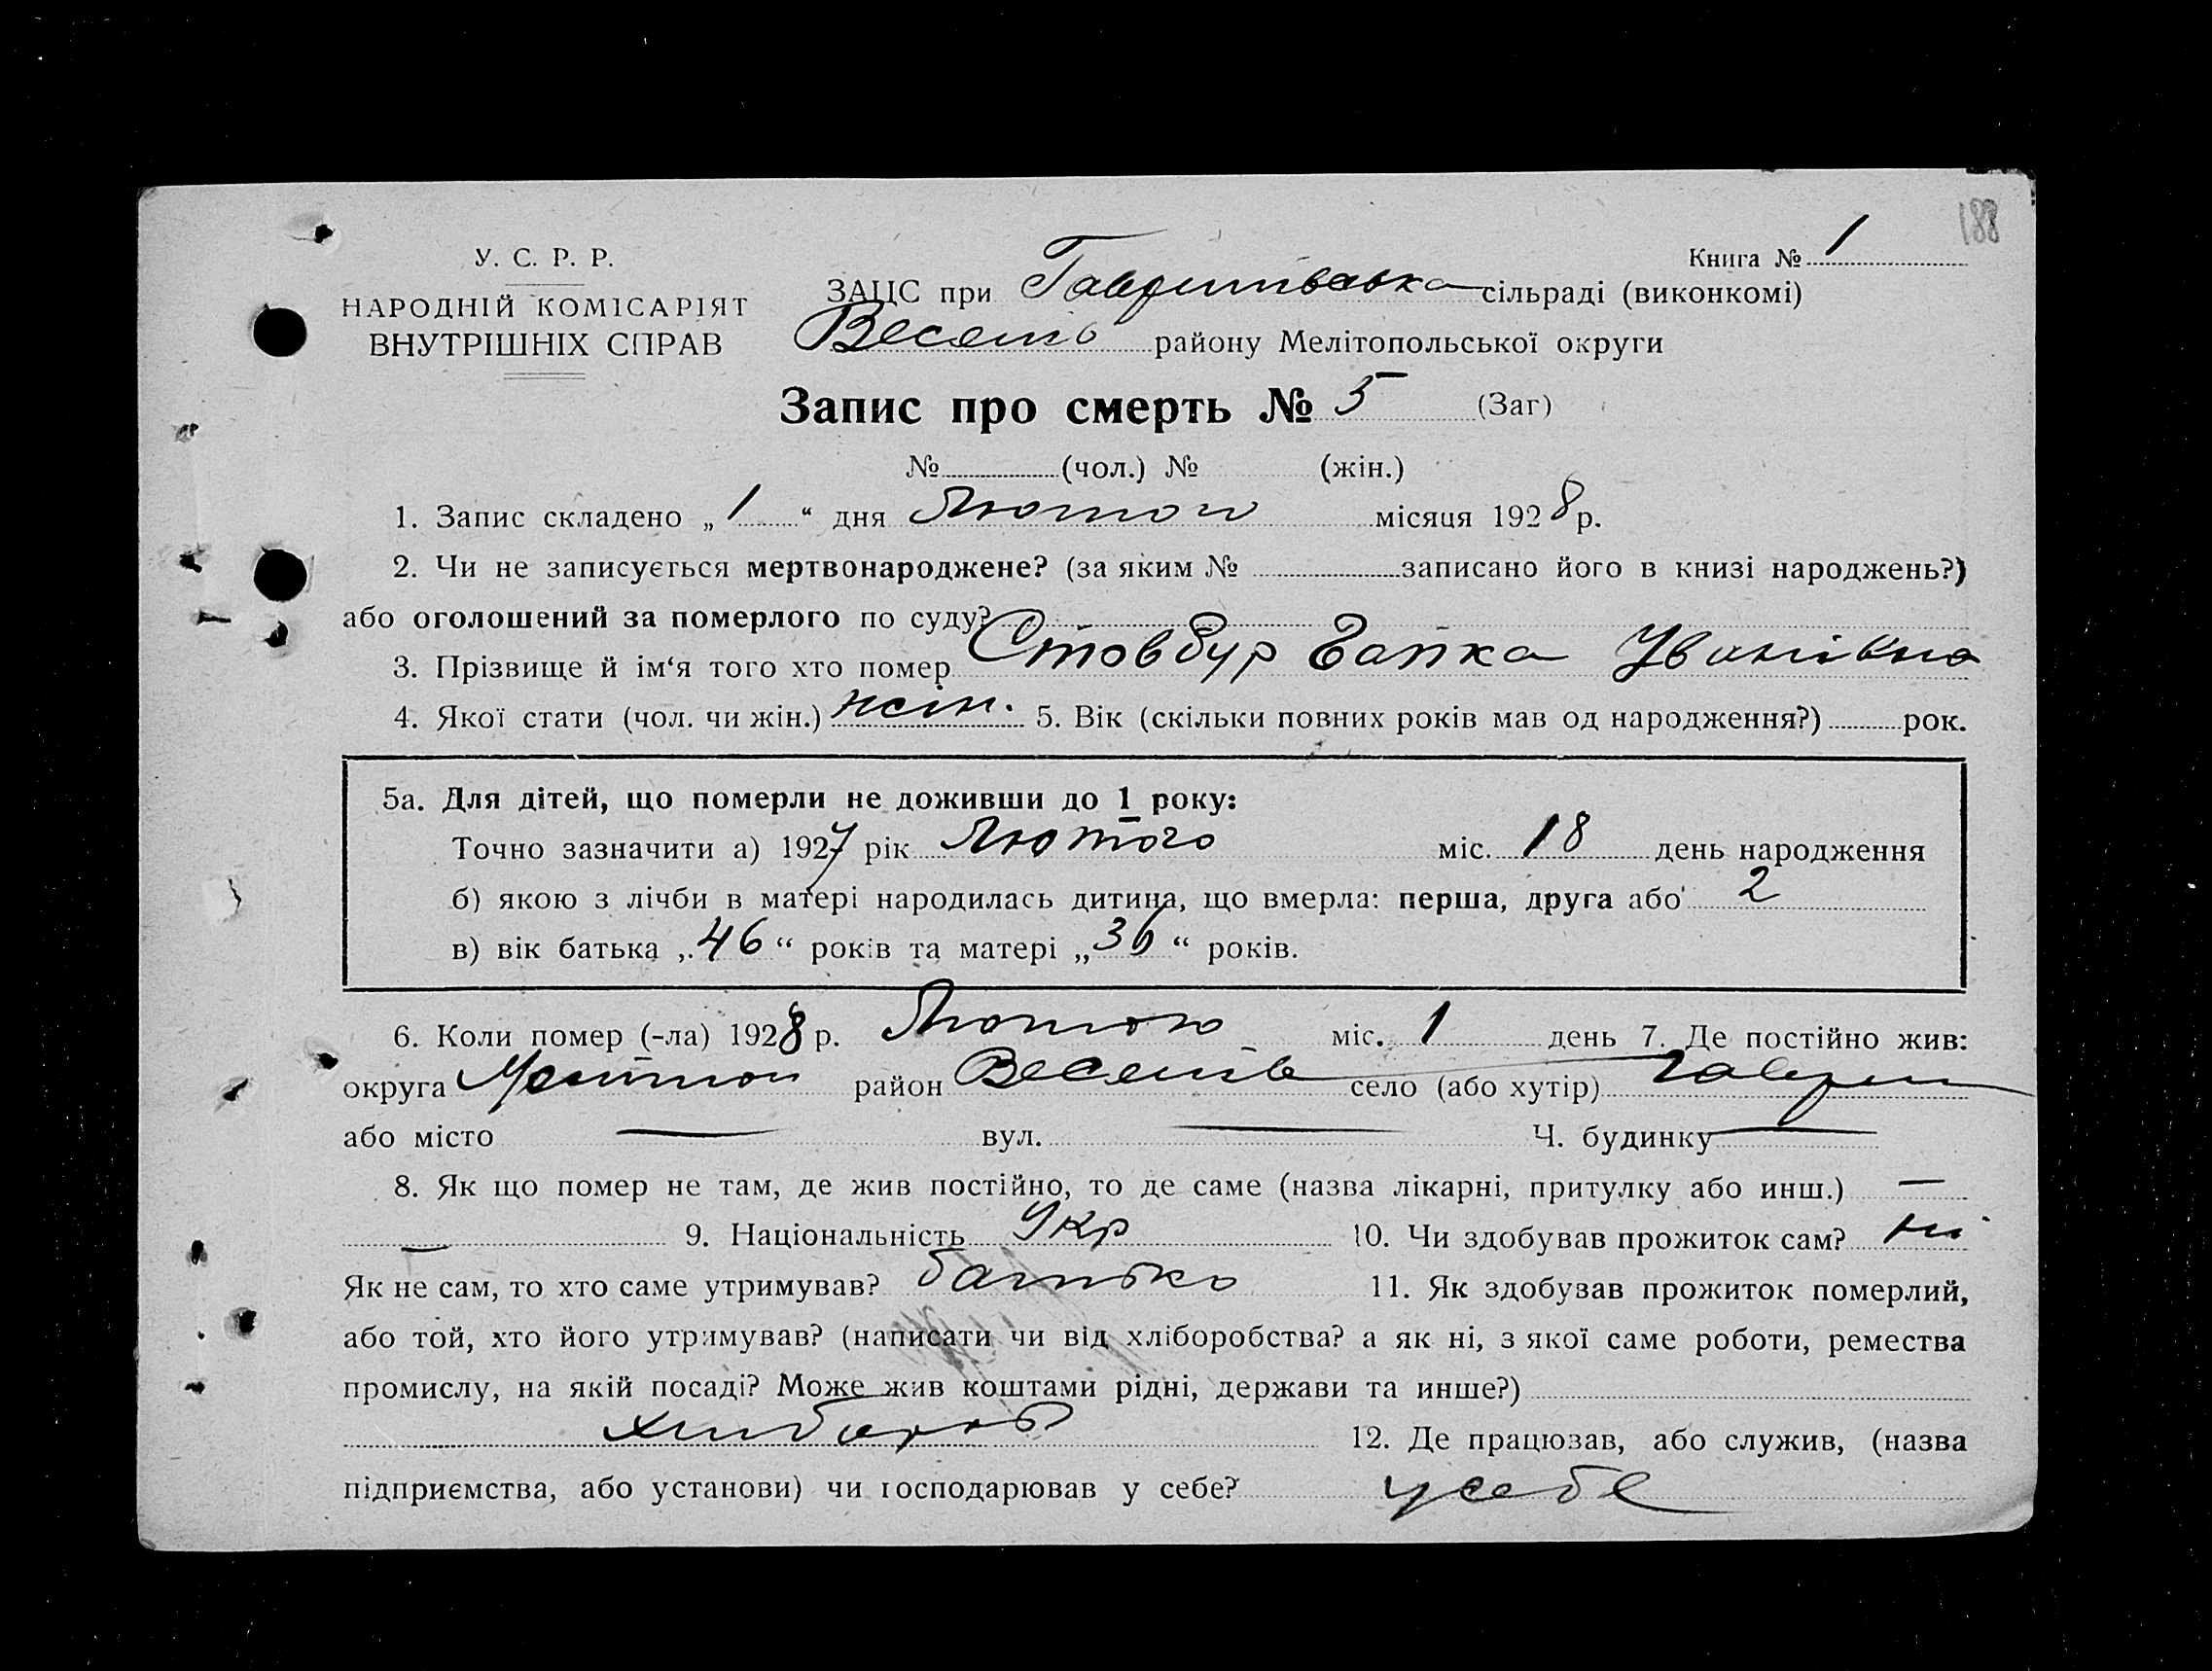 188
У. С. Р. Р.
Книга № 1
НАРОДНІЙ КОМІСАРІЯТ
ЗАЦС при сільраді (виконкомі)
ВНУТРІШНІХ СПРАВ
Веселів району Мелітопольської округи
Запис про смерть № 5 (Заг)
№ (чол.) № (жін.)
1. Запис складено „1“ дня Лютого місяця 1928 р.
2. Чи не записується мертвонароджене? (за яким № записано його в книзі народжень?)
або оголошений за померлого по суду?
3. Прізвище й ім‘я того хто помер Стовбур Гапка Іванівна
4. Якої стати (чол. чи жін.) жін. 5. Вік (скільки повних років мав од народження?) рок.
5а. Для дітей, що померли не доживши до 1 року:
Точно зазначити а) 1927 рік Лютого міс. 18 день народження
б) якою з лічби в матері народилась дитина, що вмерла: перша, друга або 2
в) вік батька „46“ років та матері „36“ років.
6. Коли помер (-ла) 1928 р. Лютого міс. 1 день 7. Де постійно жив:
округа Мелітоп район Веселів село (або хутір) Гаврил
або місто — вул. — Ч. будинку —
8. Як що помер не там, де жив постійно, то де саме (назва лікарні, притулку або инш.) —
— 9. Національність Укр 10. Чи здобував прожиток сам? ні
Як не сам, то хто саме утримував? батько 11. Як здобував прожиток померлий,
або той, хто його утримував? (написати чи від хліборобства? а як ні, з якої саме роботи, ремества
промислу, на якій посаді? Може жив коштами рідні, держави та инше?)
хлібороб 12. Де працював, або служив, (назва
підприємства, або установи) чи господарював у себе? у себе